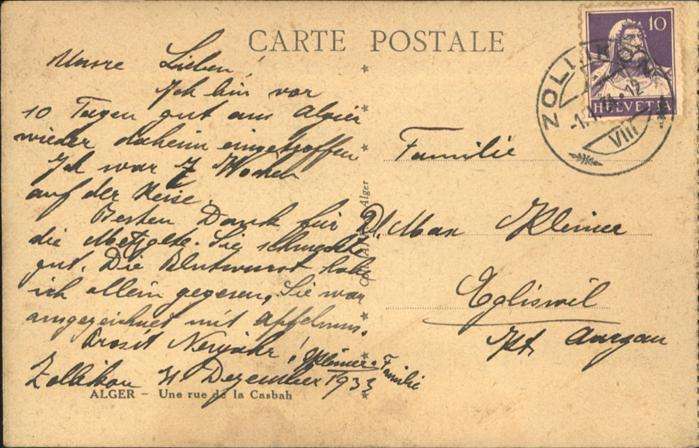 CARTE POSTALE
Unsre Lieben!
Ich bin vor
10 Tagen gut aus Algier
wieder daheim eingetroffen
Ich war 7 Wochen
auf der Reise.
Besten Dank für
die Metzgete. Sie schmeckte
gut. Die Blutwurst habe
ich allein gegessen, Sie war
ausgezeichnet mit Apfelmus.
Prosit Neujahr!
Familie
Zollikon 31 Dezember 1933
ALGER – Une rue de la Casbah
Alger
10
HELVETIA
ZOLLIKON
12
VIII
Familie
Max Kleiner
Egliswil
Kt. Aargau